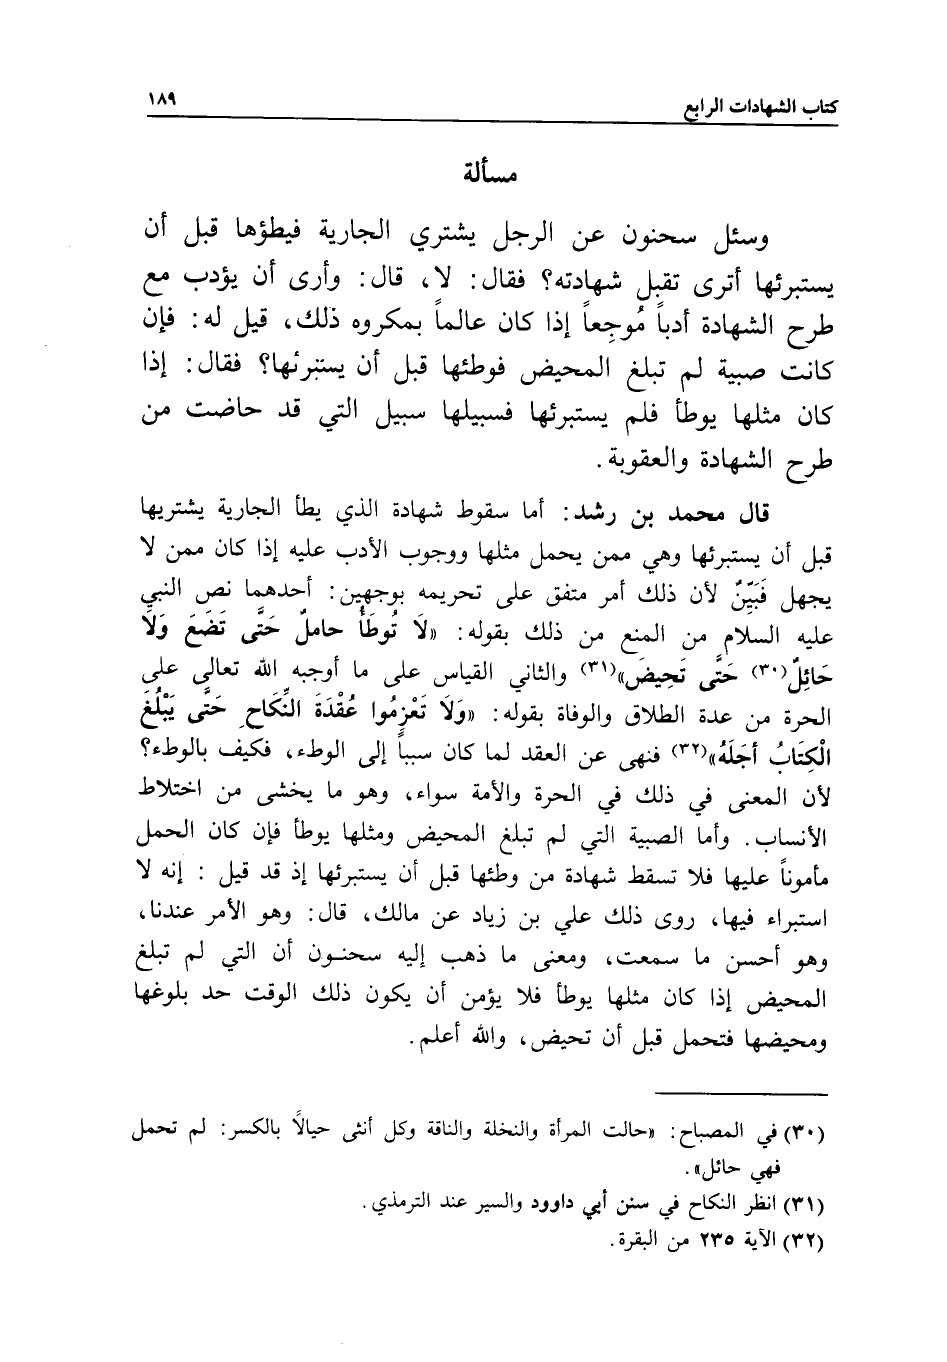 كتاب الشهادات الرابع ١٨٩
مسألة
وسئل سحنون عن الرجل يشتري الجارية فيطؤها قبل أن
يستبرئها أترى تقبل شهادته؟ فقال: لا، قال: وأرى أن يؤدب مع
طرح الشهادة أدباً مُوجِعاً إذا كان عالماً بمكروه ذلك، قيل له: فإن
كانت صبية لم تبلغ المحيض فوطئها قبل أن يستبرئها؟ فقال: إذا
كان مثلها يوطأ فلم يستبرئها فسبيلها سبيل التي قد حاضت من
طرح الشهادة والعقوبة.
قال محمد بن رشد: أما سقوط شهادة الذي يطأ الجارية يشتريها
قبل أن يستبرئها وهي ممن يحمل مثلها ووجوب الأدب عليه إذا كان ممن لا
يجهل فَبَيِّنٌ لأن ذلك أمر متفق على تحريمه بوجهين: أحدهما نص النبي
عليه السلام من المنع من ذلك بقوله: «لَا تُوطَأُ حاملٌ حَتَّى تَضَعَ وَلَا
حَائِلٌ(٣٠) حَتَّى تَحِيضَ»(٣١) والثاني القياس على ما أوجبه الله تعالى على
الحرة من عدة الطلاق والوفاة بقوله: «وَلَا تَعْزِمُوا عُقْدَةَ النِّكَاحِ حَتَّى يَبْلُغَ
الْكِتَابُ أَجَلَهُ»(٣٢) فنهى عن العقد لما كان سبباً إلى الوطء، فكيف بالوطء؟
لأن المعنى في ذلك في الحرة والأمة سواء، وهو ما يخشى من اختلاط
الأنساب. وأما الصبية التي لم تبلغ المحيض ومثلها يوطأ فإن كان الحمل
مأموناً عليها فلا تسقط شهادة من وطئها قبل أن يستبرئها إذ قد قيل : إنه لا
استبراء فيها، روى ذلك علي بن زياد عن مالك، قال: وهو الأمر عندنا،
وهو أحسن ما سمعت، ومعنى ما ذهب إليه سحنـون أن التي لم تبلغ
المحيض إذا كان مثلها يوطأ فلا يؤمن أن يكون ذلك الوقت حد بلوغها
ومحيضها فتحمل قبل أن تحيض، والله أعلم.
(٣٠) في المصباح: «حالت المرأة والنخلة والناقة وكل أنثى حيالًا بالكسر: لم تحمل
فهي حائل».
(٣١) انظر النكاح في سنن أبي داوود والسير عند الترمذي.
(٣٢) الآية ٢٣٥ من البقرة.